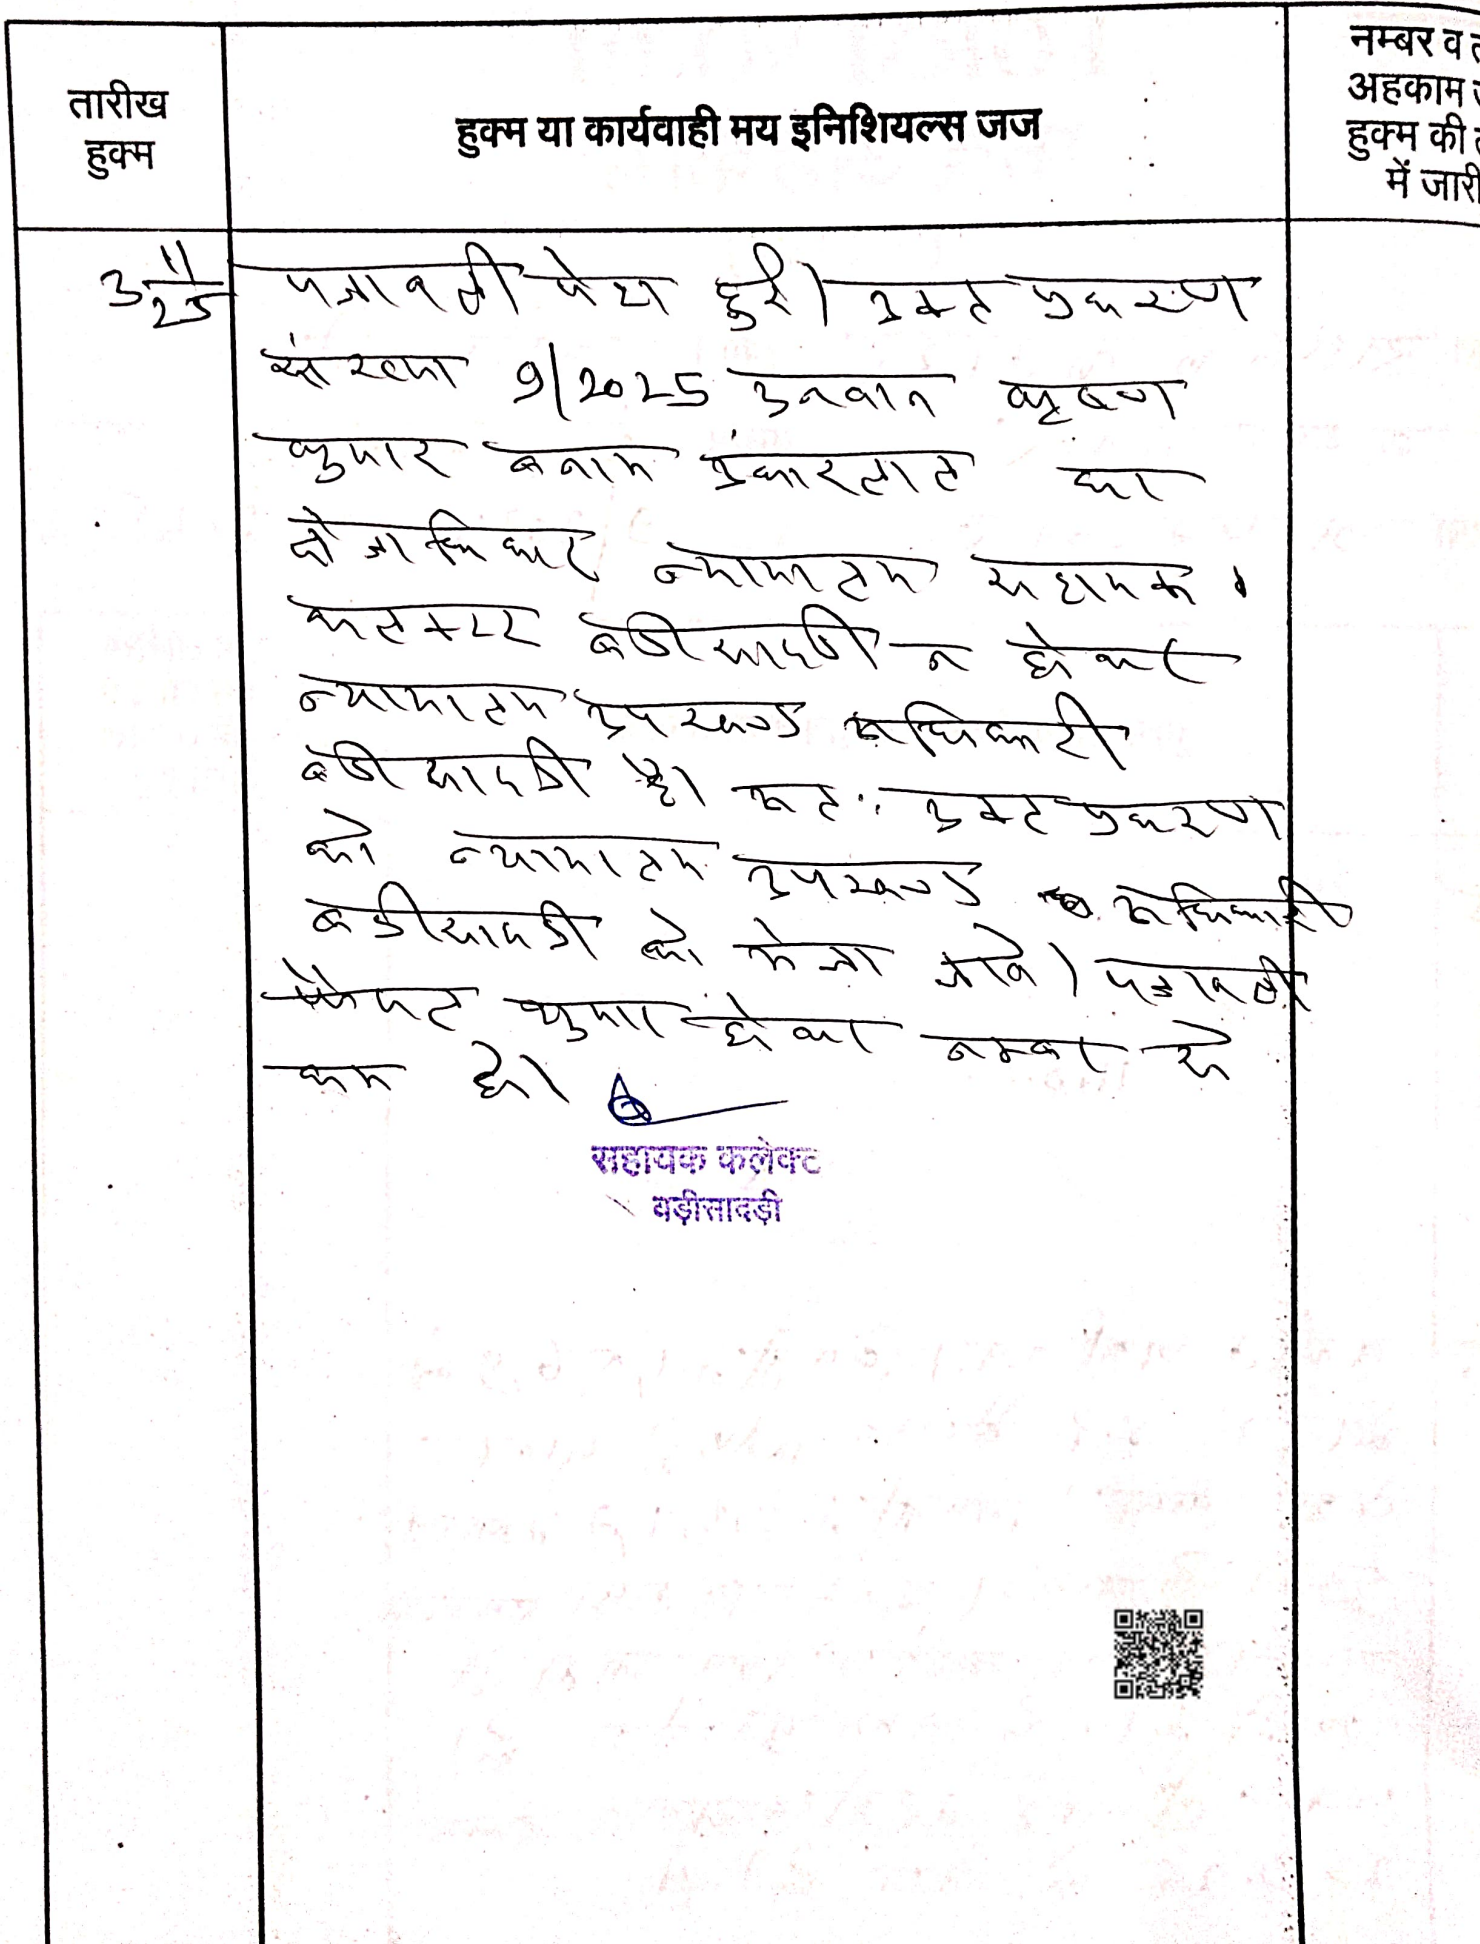 तारीख
हुक्म
हुक्म या कार्यवाही मय इनिशियल्स जज
नम्बर व
अहकाम
हुक्म की
में जारी
3/11/25
पत्रावली पेश हुई। उक्त प्रकरण
संख्या 9/2025 उनवान कृष्ण
कुमार बनाम उंकारलाल का
क्षेत्राधिकार न्यायालय सहायक
कलक्टर बडीसादडी न होकर
न्यायालय उपखण्ड अधिकारी
बडीसादडी है। अतः उक्त प्रकरण
को न्यायालय उपखण्ड अधिकारी
बडीसादडी को भेजा जावे। पत्रावली
फैसल शुमार होकर नम्बर से
कम हो।
सहायक कलेक्ट
बड़ीसादड़ी